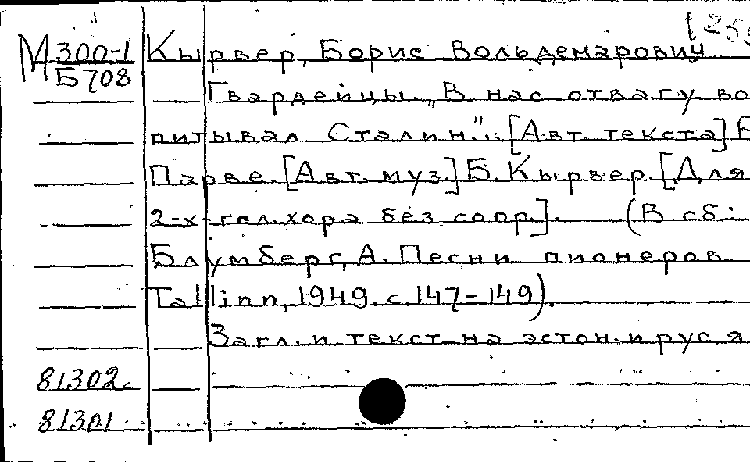 [25
М 300-1 Кырвер, Борис Вольдемарович
Б708
Гвардейцы. „В нас отвагу во
питывал Сталин...". [Авт. текста]
Парве. [Авт. муз.] Б. Кырвер. [Для
2-х гол. хора без сопр.]. (В сб.:
Блумберг, А. Песни пионеров
Tallinn, 1949. с. 147-149).
Загл. и текст на эстон. и рус. я
81302
81301